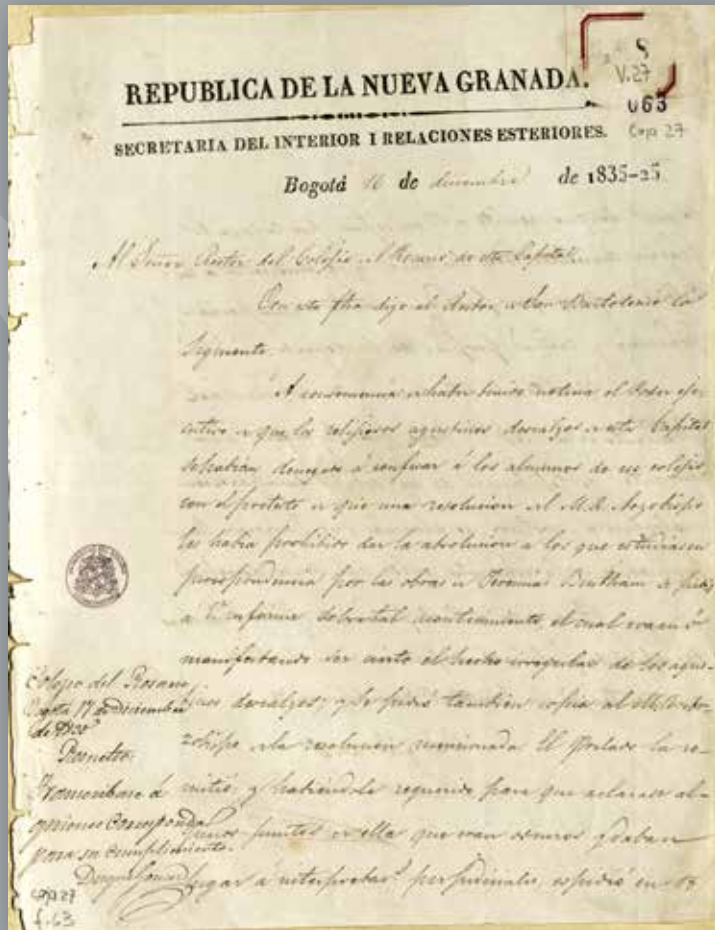 8
V.27
REPUBLICA DE LA NUEVA GRANADA.
063
Caja 27
SECRETARIA DEL INTERIOR I RELACIONES ESTERIORES.
Bogotá 16 de diciembre de 1835-25
Al Señor Rector del Colejio del Rosario de esta Capital.
Con esta fha digo al Rector de San Bartolomé lo
siguiente.
A consecuencia de haber tenido noticia el Poder eje-
cutivo de que los relijiosos agustinos descalzos de esta Capital
se habian denegado á confesar á los alumnos de ese colejio
con el pretesto de que una resolucion del M. R. Arzobispo
les habia prohibido dar la absolucion á los que estudiasen
por las obras de Jeremias Bentham se pidió
a U. informe sobre tal acontecimiento el cual evacuó
manifestando ser cierto el hecho irregular de los agus-
tinos descalzos; y se pidió también copia al M. R. Ar-
zobispo de la resolucion mencionada. El Prelado la re-
mitió, y habiéndole requerido para que aclarase al-
gunos puntos de ella que eran oscuros y daban
lugar á interpretac.s perjudiciales, espidió en 18
Colejio del Rosario
Bogotá 17 de Diciembre
de 1835
á
quienes corresponda
para su cumplimiento.
caja 27
f.63